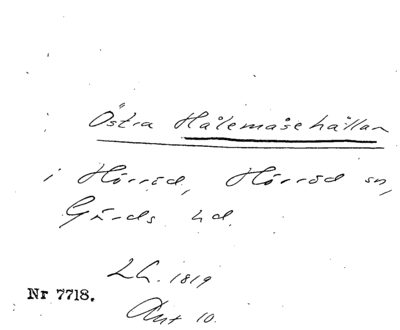 Östra Hålemåsehållan
i Hörröd, Hörröd sn,
Gärds hd.
Lh. 1819
Nr 7718.
Akt 10.